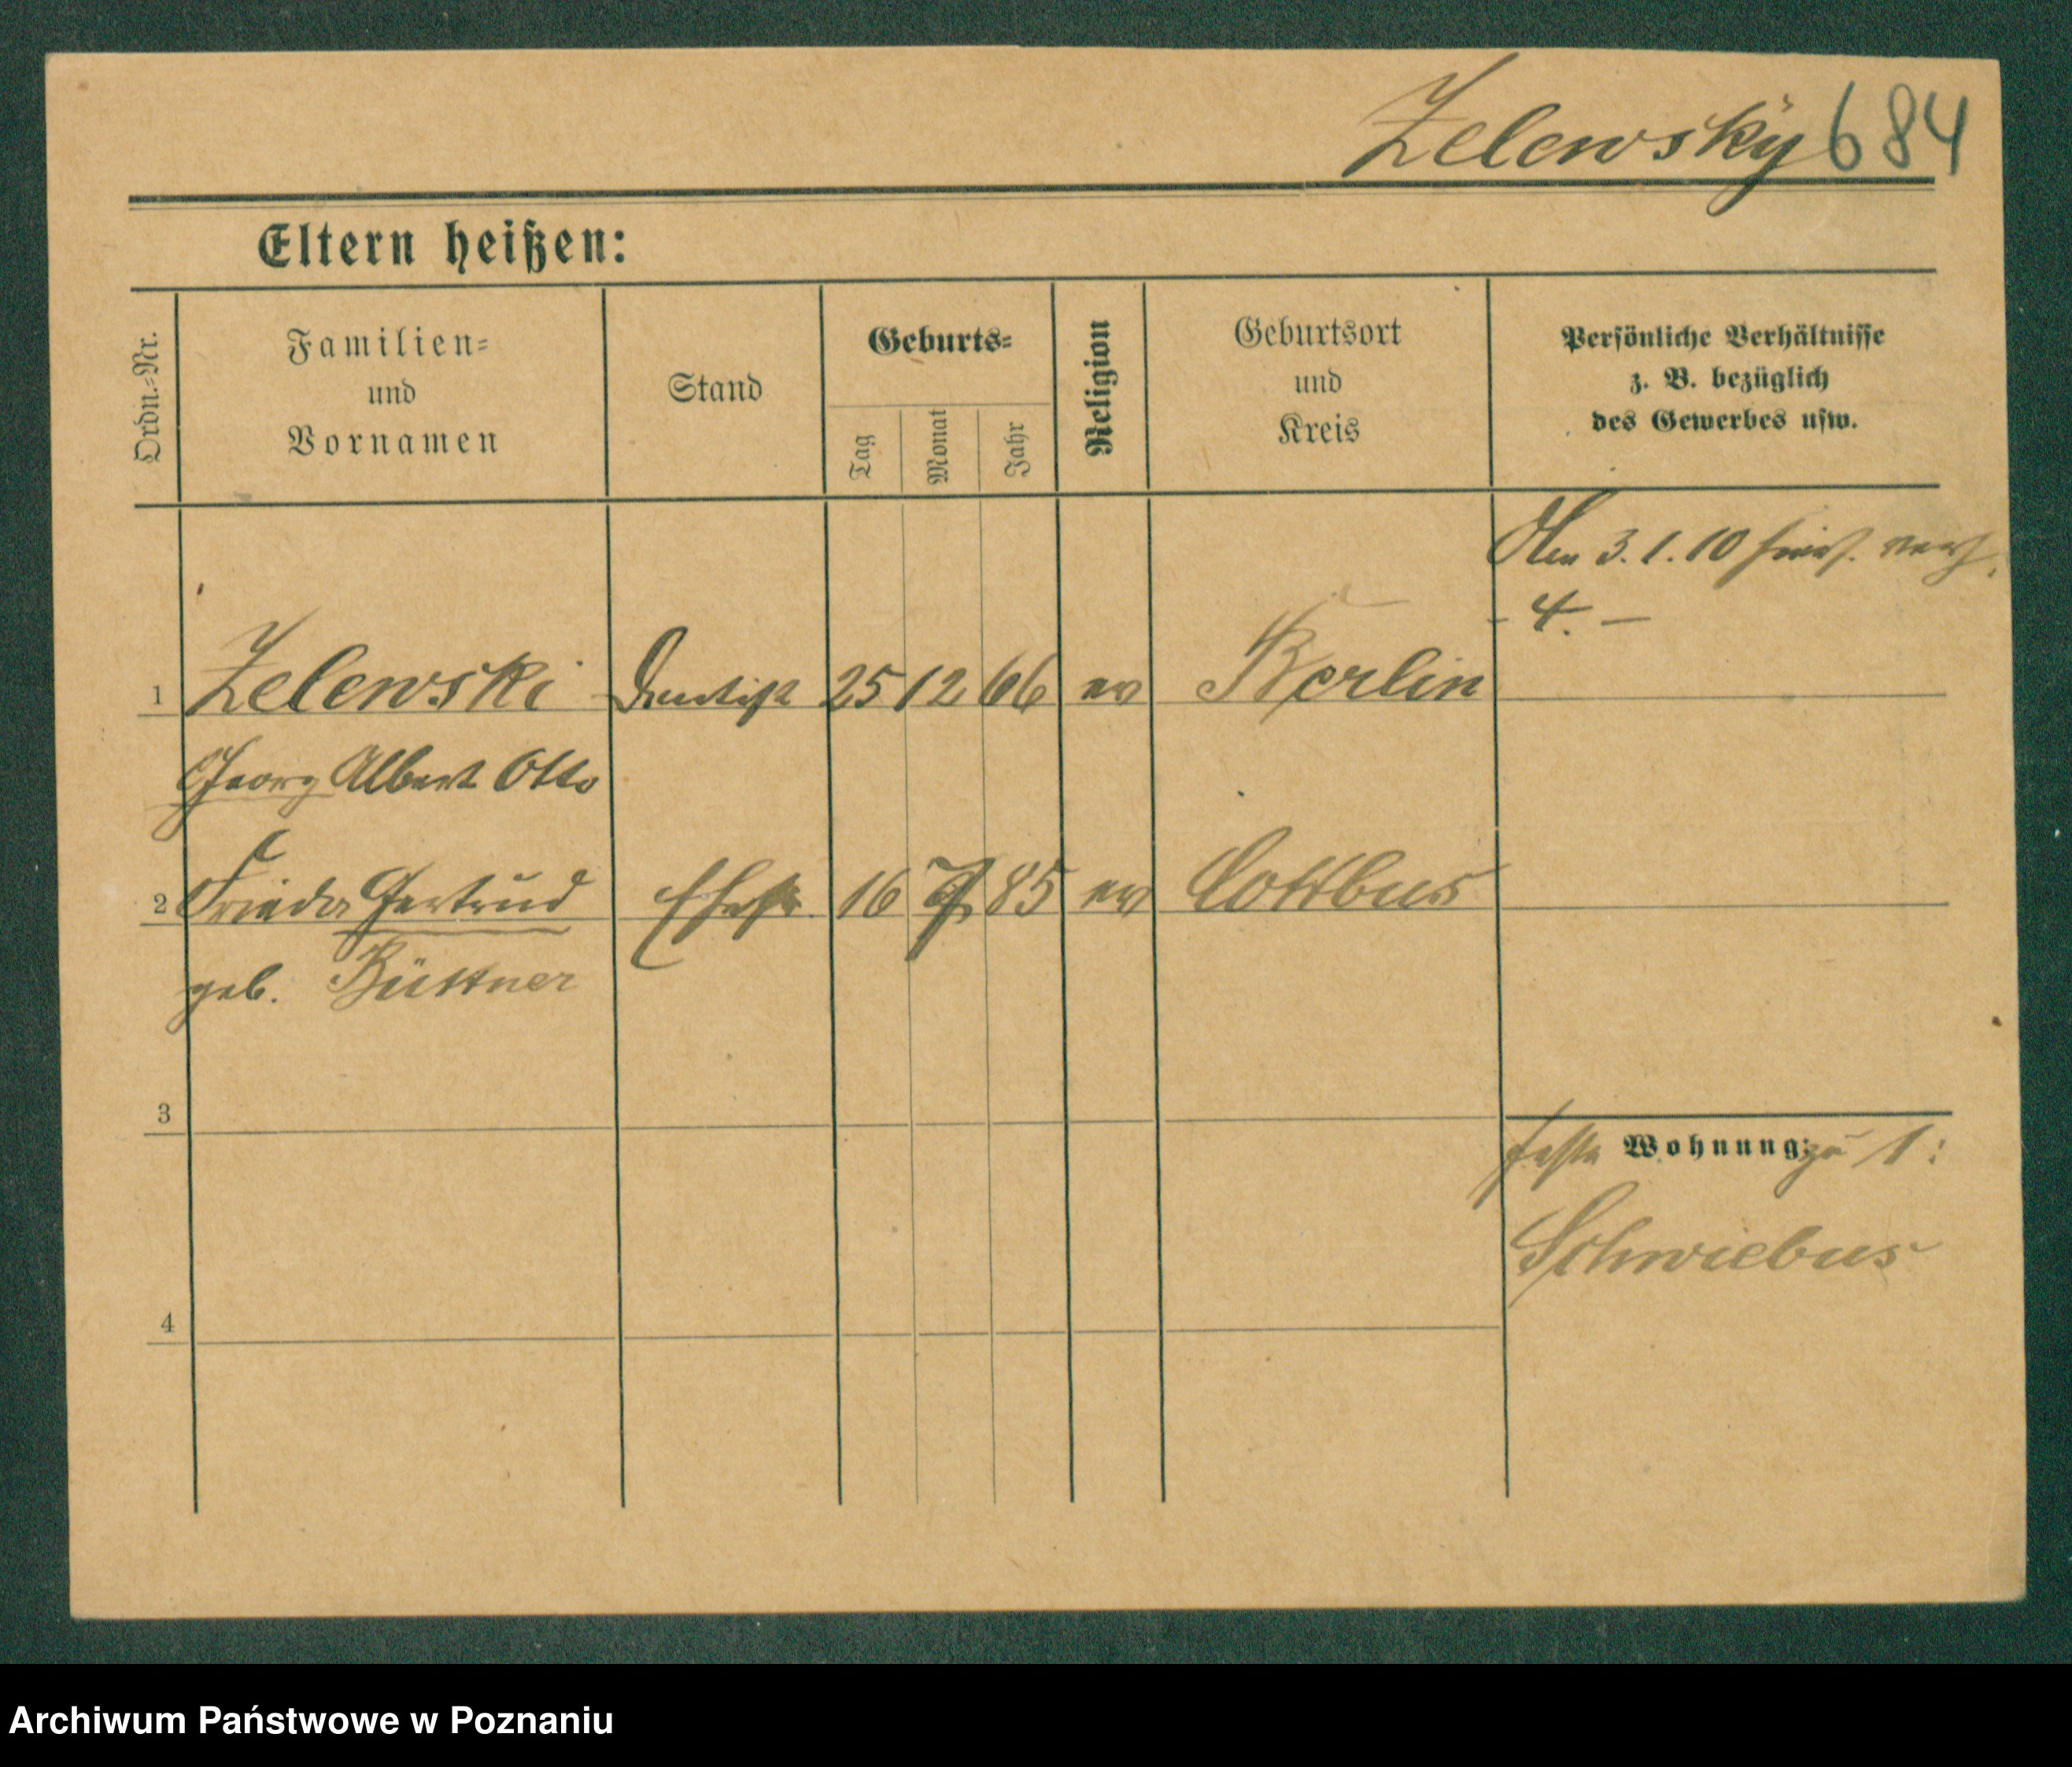 Zelewsky 684
Eltern heißen:
Ordn.-Nr.
Familien-
und
Vornamen
Stand
Geburts-
Tag
Monat
Jahr
Religion
Geburtsort
und
Kreis
Persönliche Verhältnisse
z. B. bezüglich
des Gewerbes usw.
3. 1. 10
- 4. -
1 Zelewski Dentist 25 12 66 ev Berlin
Georg Albert Otto
2 Frieda Gertrud Ehefr. 16 85 ev Cottbus
geb. Büttner
3
feste Wohnung: zu 1:
Schwiebus
4
Archiwum Państwowe w Poznaniu